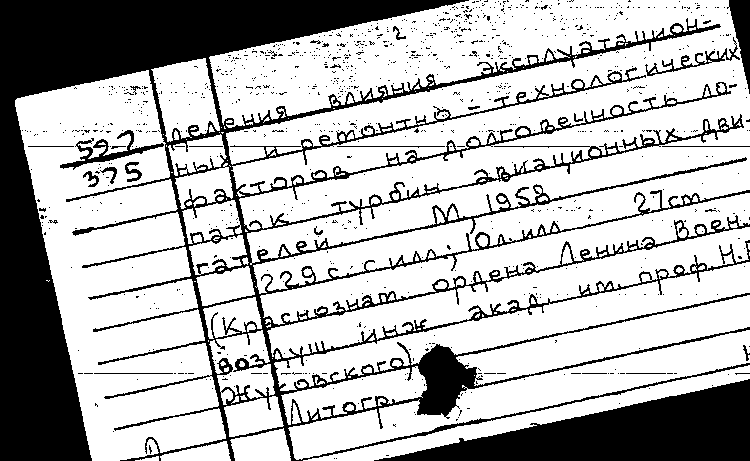 2
59-7
375
деления влияния эксплуатацион-
ных и ремонтно-технологических
факторов на долговечность ло-
паток турбин авиационных дви-
гателей. М., 1958
229 с. с илл.; 10 л. илл. 27 см.
(Краснознам. ордена Ленина Воен.
воздуш. инж. акад. им. проф. Н.Е.
Жуковского)
Литогр.